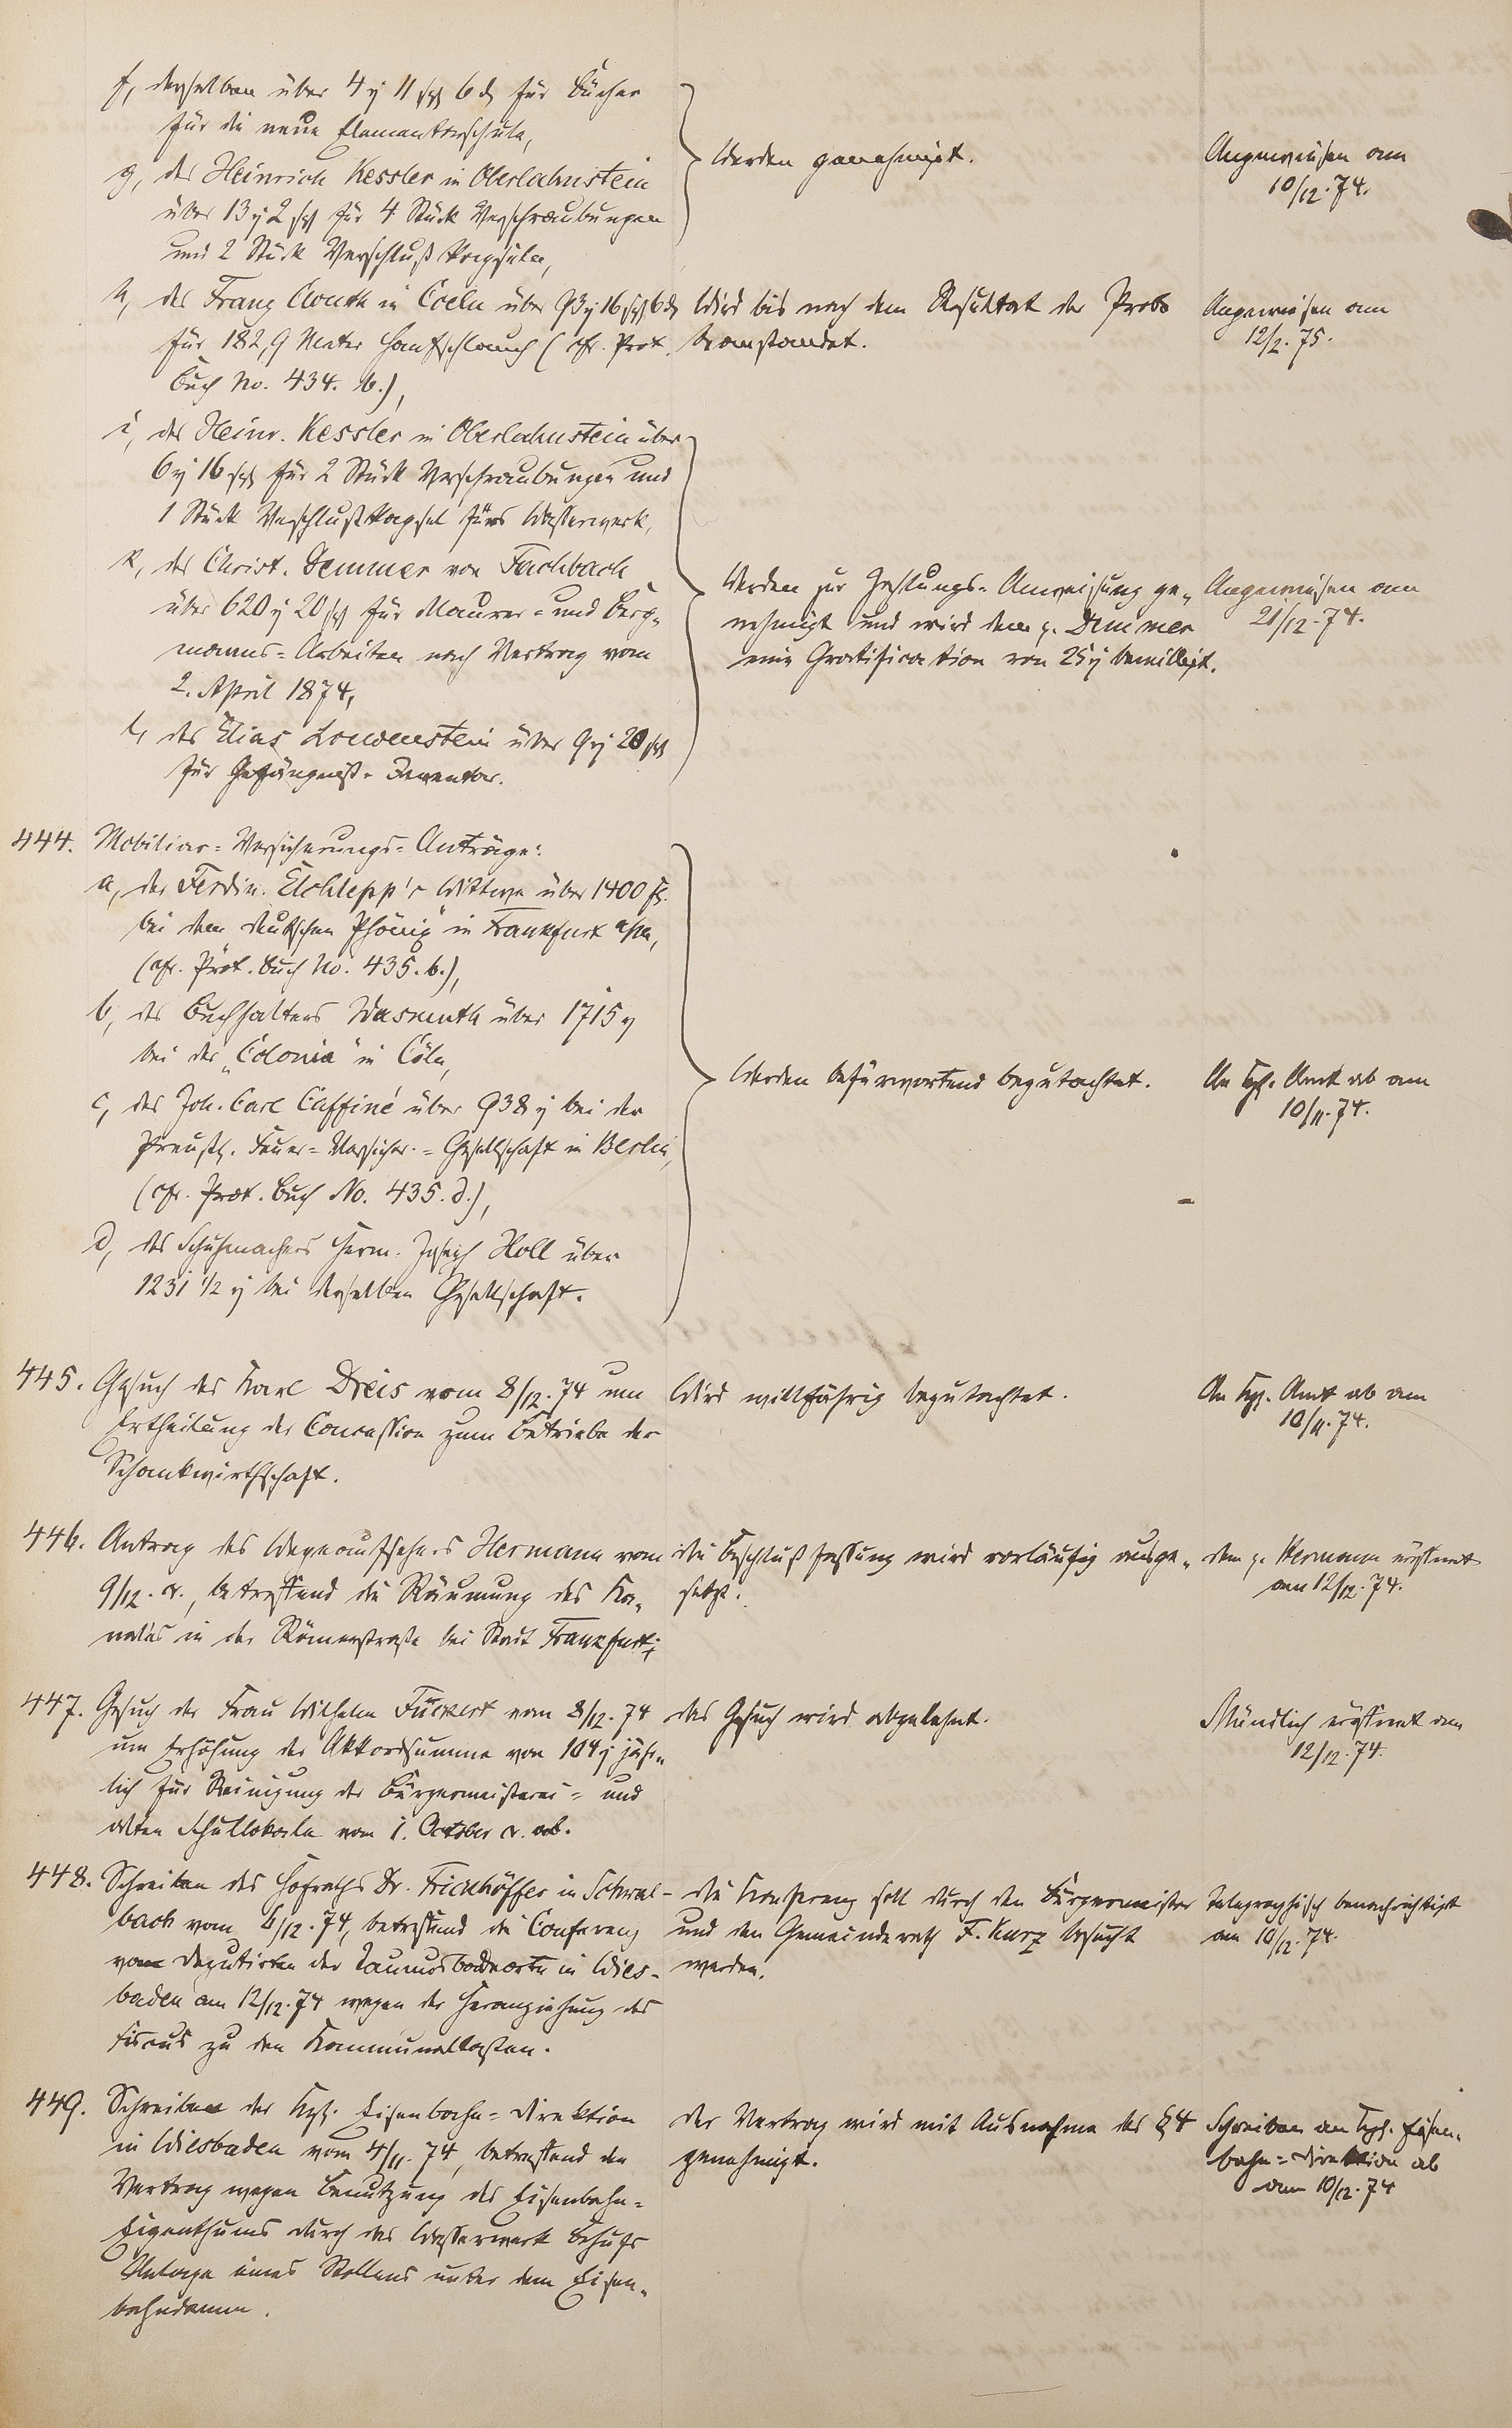 f, desselben über 4 ₰ 11 sgr 6 d für Bücher
für die neue Elementarschule,
g, des Heinrich Kessler in Oberlahnstein
über 13 ₰ 2 sgr für 4 Stück Verschraubungen
und 2 Stück Verschlußkapseln,
Werden genehmigt.
Angewiesen am
10/12. 74.
h, des Franz Clouth in Coeln über 93 ₰ 16 sgr 6 d
für 182,9 Meter Hanfschlauch (cfr. Prot.
Buch No. 434. b.),
Wird bis nach dem Resultat der Probe
beanstandet.
Angewiesen am
12/2. 75.
i, des Heinr. Kessler in Oberlahnstein über
6 ₰ 16 sgr für 2 Stück Verschraubungen und
1 Stück Verschlußkapsel fürs Wasserwerk,
k, des Christ. Demmer von Fachbach
über 620 ₰ 20 sgr für Maurer- und Berg-
manns-Arbeiten nach Vertrag vom
2. April 1874,
l, des Elias Louvenstein über 9 ₰ 20 sgr
für Gefängniß-Inventar.
Werden zur Zahlungs-Anweisung ge-
nehmigt und wird dem p. Demmer
eine Gratification von 25 ₰ bewilligt.
Angewiesen am
21/12. 74.
444. Mobiliar-Versicherungs-Anträge:
a, der Ferdin. Elchlepp's Wittwe über 1400 fl.
bei dem deutschen Phönix" in Frankfurt a/M,
(cfr. Prot. Buch No. 435. b.),
b, des Buchhalters Wasmuth über 1715 ₰
bei der „Colonia" in Cöln,
c, des Joh. Carl Caffiné über 938 ₰ bei der
Preuß. Feuer-Versicher.-Gesellschaft in Berlin,
(cfr. Prot. Buch No. 435. d.),
d, des Schuhmachers Herm. Joseph Holl über
1231 1/2 ₰ bei derselben Gesellschaft.
Werden befürwortend begutachtet.
An Kgl. Amt ab am
10/11. 74.
445. Gesuch des Karl Dreis vom 8/12. 74 um
Ertheilung der Concession zum Betriebe der
Schankwirthschaft.
Wird willfährig begutachtet.
An Kgl. Amt ab am
10/11. 74.
446. Antrag des Wegeaufsehers Hermann vom
9/12. c., betreffend die Räumung des Ka-
nales in der Römerstraße bei Stadt Frankfurt;
die Beschlußfassung wird vorläufig ausge-
setzt.
dem p. Hermann eröffnet
am 12/12. 74.
447. Gesuch der Frau Wilhelm Fückert vom 8/12. 74
um Erhöhung der Akkordsumme von 104 ₰ jähr-
lich für Reinigung der Bürgermeisterei- und
alten Schullokale vom 1. October c. ab.
das Gesuch wird abgelehnt.
Mündlich eröffnet am
12/12. 74.
448. Schreiben des Hofraths Dr. Frickhöffer in Schwal-
bach vom 6/12. 74, betreffend die Conferenz
von Deputirten der Taunusbadeorte in Wies-
baden am 12/12. 74 wegen der Heranziehung des
Fiscus zu den Kommunallasten.
die Konferenz soll durch den Bürgermeister
und den Gemeinderath F. Kurz besucht
werden.
Telegraphisch benachrichtigt
am 10/12. 74.
449. Schreiben der Kgl. Eisenbahn-Direktion
in Wiesbaden vom 4/11. 74, betreffend den
Vertrag wegen Benutzung des Eisenbahn-
Eigenthums durch das Wasserwerk Behufs
Anlage eines Stollens unter dem Eisen-
bahndamm.
Der Vertrag wird mit Ausnahme des § 4
genehmigt.
Schreiben an Kgl. Eisen-
bahn-Direktion ab
am 10/12. 74